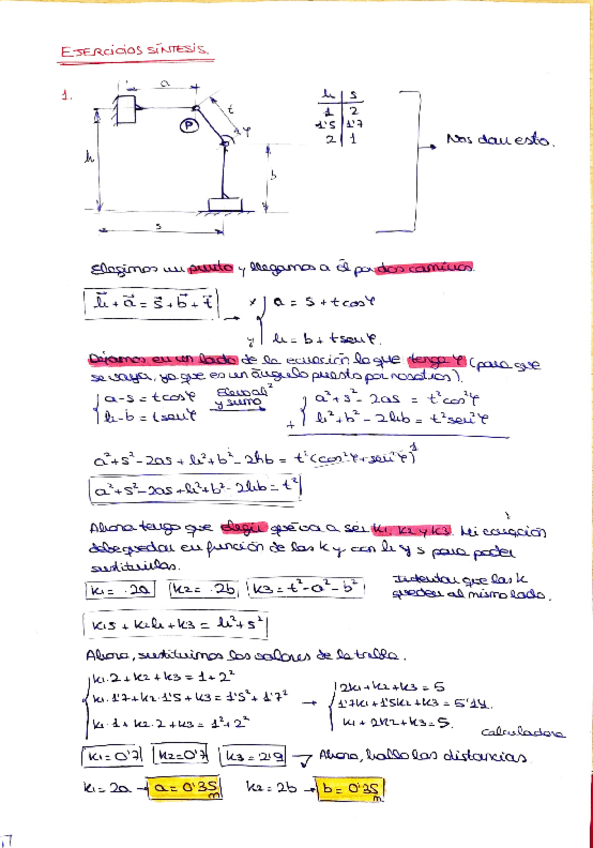 EJERCICIOS SÍNTESIS.
1.
a
t
P
φ
h
b
s
h | s
1 | 2
1'5 | 1'7
2 | 1
Nos dan esto.
Elegimos un punto y llegamos a él por dos caminos.
h + a = s + b + t
x a = s + t cosφ
y h = b + t senφ.
Dejamos en un lado de la ecuación lo que tenga φ (para que
se vaya, ya que es un ángulo puesto por nosotros).
a-s = t cosφ
h-b = t senφ
Elevo al ²
y sumo
a² + s² - 2as = t² cos²φ
+ h² + b² - 2hb = t² sen²φ
a² + s² - 2as + h² + b² - 2hb = t² (cos²φ + sen²φ) 1
a² + s² - 2as + h² + b² - 2hb = t²
Ahora tengo que elegir qué va a ser k1, k2 y k3. Mi ecuación
debe quedar en función de las k y con h y s para poder
sustituirlas.
k1 = 2a k2 = 2b k3 = t² - a² - b²
Intentar que las k
queden al mismo lado.
k1s + k2h + k3 = h² + s²
Ahora, sustituimos los valores de la tabla.
k1·2 + k2 + k3 = 1 + 2²
k1·1'7 + k2·1'5 + k3 = 1'5² + 1'7²
k1·1 + k2·2 + k3 = 1² + 2²
2k1 + k2 + k3 = 5
1'7k1 + 1'5k2 + k3 = 5'14.
k1 + 2k2 + k3 = 5.
calculadora
k1 = 0'7 k2 = 0'7 k3 = 2'9 Ahora, hallo las distancias
k1 = 2a → a = 0'35 m k2 = 2b → b = 0'35 m